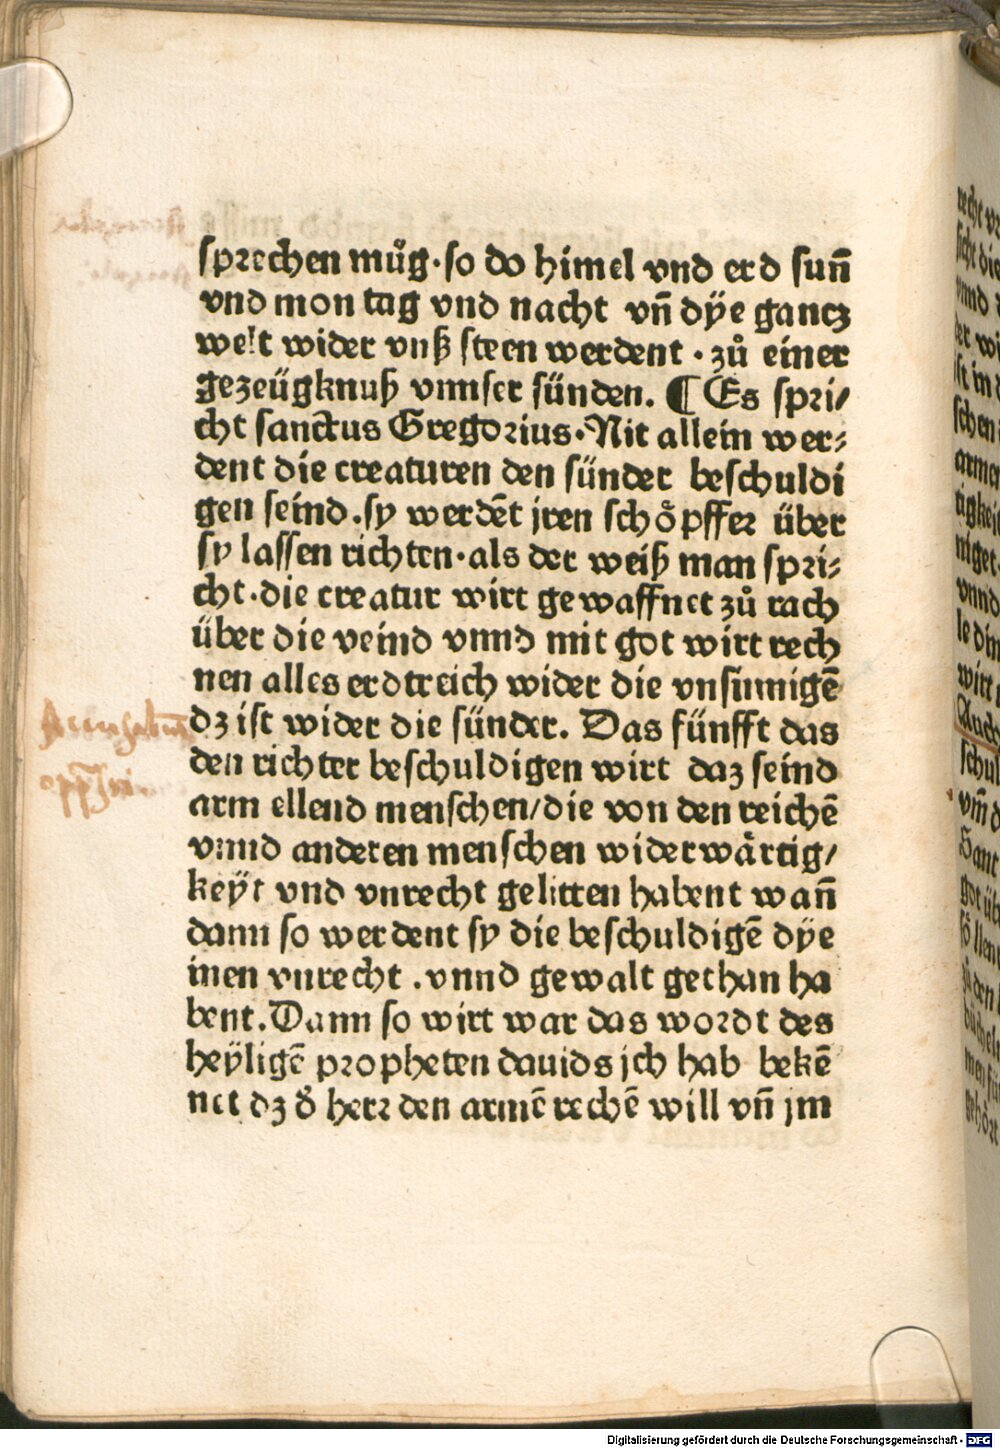 sprechen můg·so do himel vnd erd sun̄
vnd mon tag vnd nacht vn̄ dÿe gantz
welt wider vnß steen werdent · zů einer
gezeügknuß vnnser sünden. ¶ Es spri/
cht sanctus Gregorius·Nit allein wer⸗
dent die creaturen den sünder beschuldi
gen seind .sy werdēt jren schöpffer über
sy lassen richten·als der weiß man spri⸗
cht·die creatur wirt gewaffnet zů rach
über die veind vnnd mit got wirt rech
nen alles erdtreich wider die vnsinnigē
dz ist wider die sünder. Das fünfft das
den richter beschuldigen wirt daz seind
arm ellend menschen/die von den reichē
vnnd anderen menschen widerwärtig/
keÿt vnd vnrecht gelitten habent wan̄
dann so werdent sy die beschuldigē dÿe
inen vnrecht .vnnd gewalt gethan ha
bent.Dann so wirt war das wordt des
heÿligē propheten dauids jch hab bekē
net dz d̊ herr den armē rechē will vn̄ jm
Digitalisierung gefördert durch die Deutsche Forschungsgemeinschaft - DFG